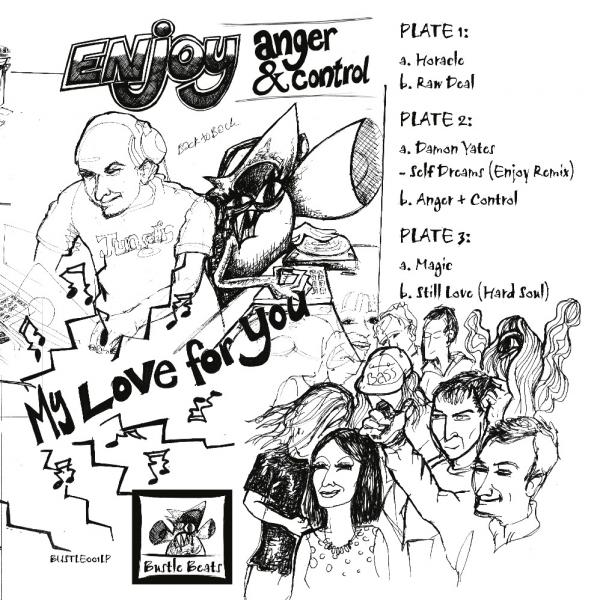 ENJOY
anger
& control
PLATE 1:
a. Horacle
b. Raw Deal
PLATE 2:
a. Damon Yates
- Self Dreams (Enjoy Remix)
b. Anger + Control
PLATE 3:
a. Magic
b. Still Love (Hard Soul)
Back to Back
My Love for You
Bustle Beats
BUSTLE001LP